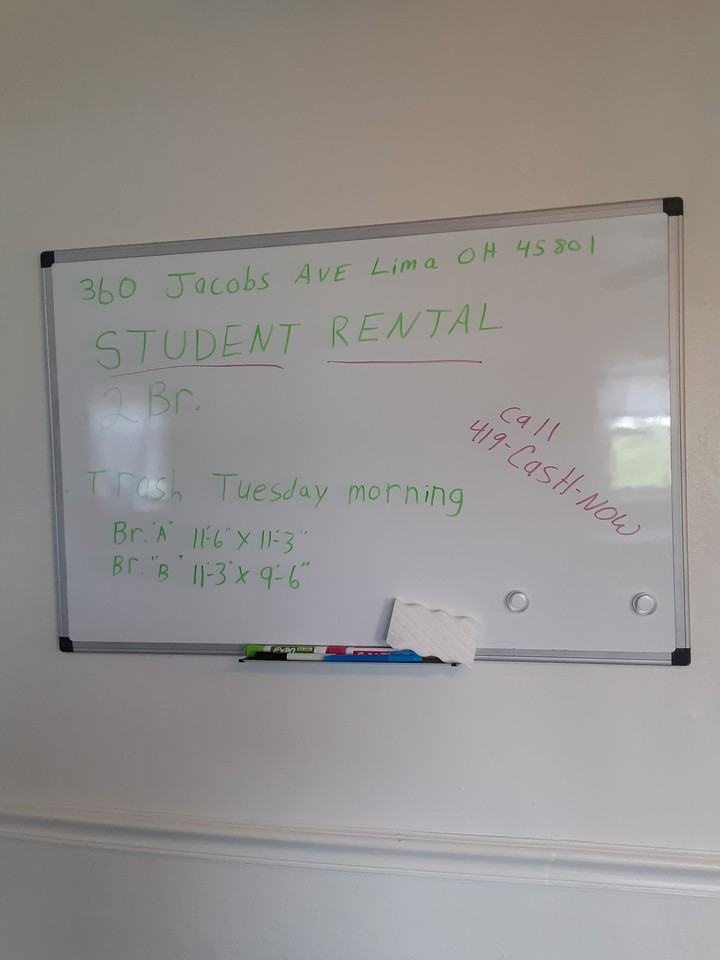 360 Jacobs AVE Lima OH 45801
STUDENT RENTAL
2 Br.
Call
419-CASH-NOW
Trash Tuesday morning
Br. "A" 11'-6" X 11'-3"
Br. "B" 11'-3" X 9'-6"
EXPO